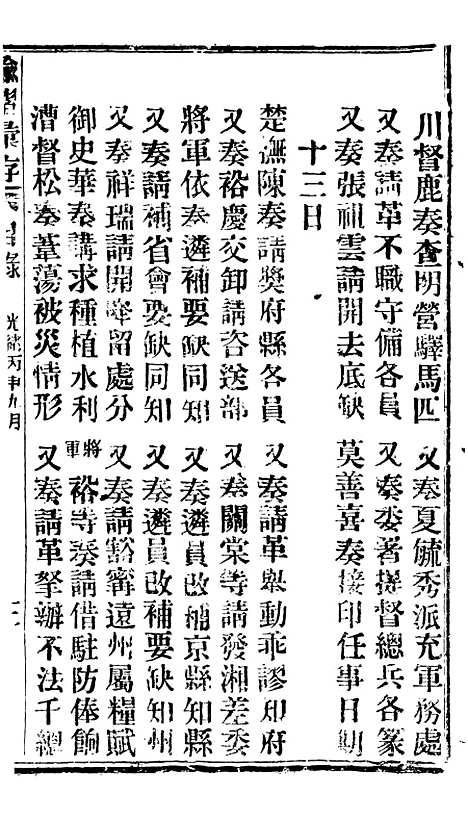 川督鹿奏查明營驛馬匹　又奏夏毓秀派充軍務處
又奏請革不職守備各員　又奏委署提督總兵各篆
又奏張祖雲請開去底缺　莫善喜奏接印任事日期
十三日
楚撫陳奏請獎府縣各員　又奏請革舉動乖謬知府
又奏裕慶交卸請咨送部　又奏關棠等請發湘差委
將軍依奏遴補要缺同知　又奏遴員改補京縣知縣
又奏請補省會要缺同知　又奏遴員改補要缺知州
又奏祥瑞請開舉留處分　又奏請豁寗遠州屬糧賦
御史華奏講求種植水利　將軍裕等奏請借駐防俸餉
漕督松奏葦蕩被災情形　又奏請革拏辦不法千總
諭摺彙存 目錄 光緒丙申九月